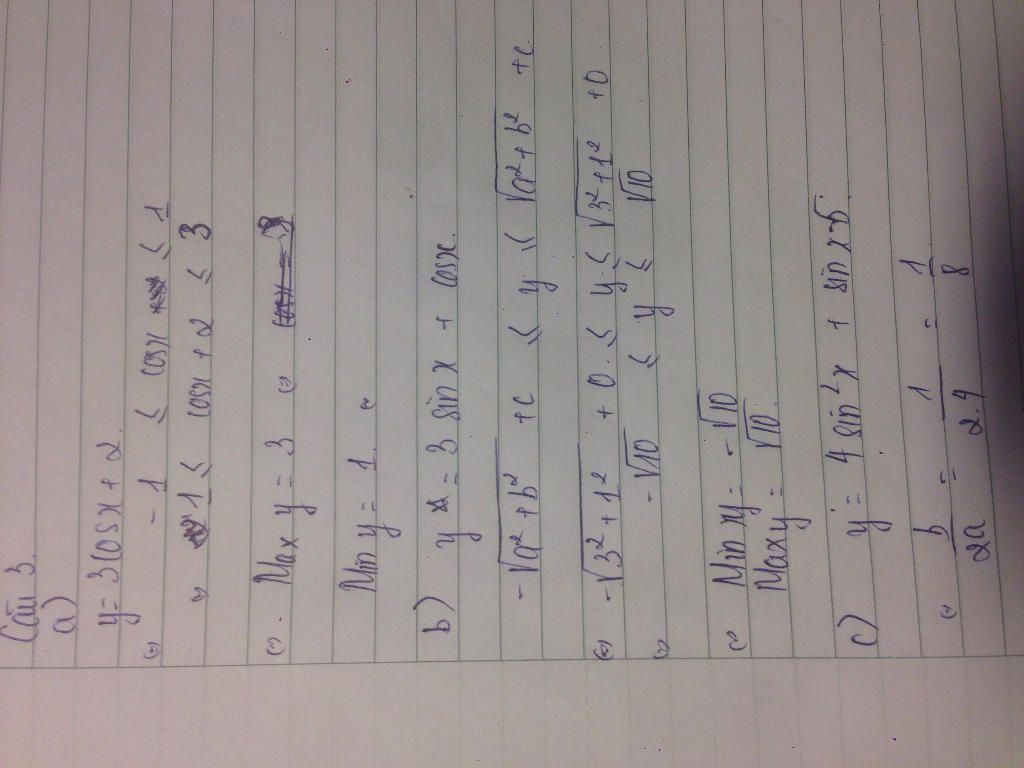 Câu 3.
a)
y = 3cosx + 2.
⇔ -1 ≤ cosx ≤ 1
⇔ 1 ≤ cosx + 2 ≤ 3
⇔ Max y = 3 ⇔
Min y = 1. ⇔
b) y = 3 sin x + cosx.
-√a²+b² + c ≤ y ≤ √a²+b² + c
⇔ -√3²+1² + 0 ≤ y ≤ √3²+1² + 0
⇔ -√10 ≤ y ≤ √10
⇔ Min y = -√10
Max y = √10.
c) y = 4 sin²x + sin x - 5.
⇔ b/2a = 1/2.4 = 1/8